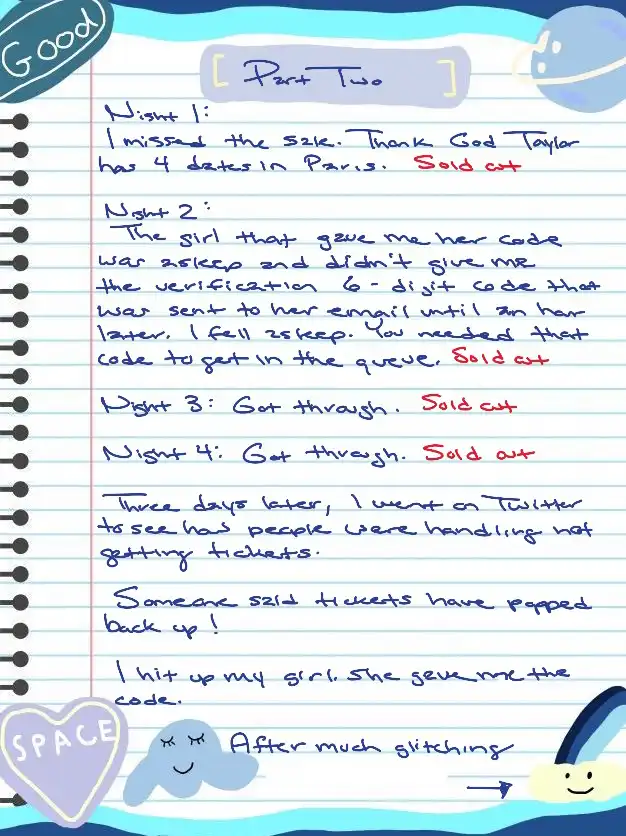 Good
[ Part Two ]
Night 1:
I missed the sale. Thank God Taylor
has 4 dates in Paris. Sold out
Night 2:
The girl that gave me her code
was asleep and didn't give me
the verification 6-digit code that
was sent to her email until an hour
later. I fell asleep. You needed that
code to get in the queue. Sold out
Night 3: Got through. Sold out
Night 4: Got through. Sold out
Three days later, I went on Twitter
to see how people were handling not
getting tickets.
Someone said tickets have popped
back up!
I hit up my girl. She gave me the
code.
SPACE
After much glitching
→